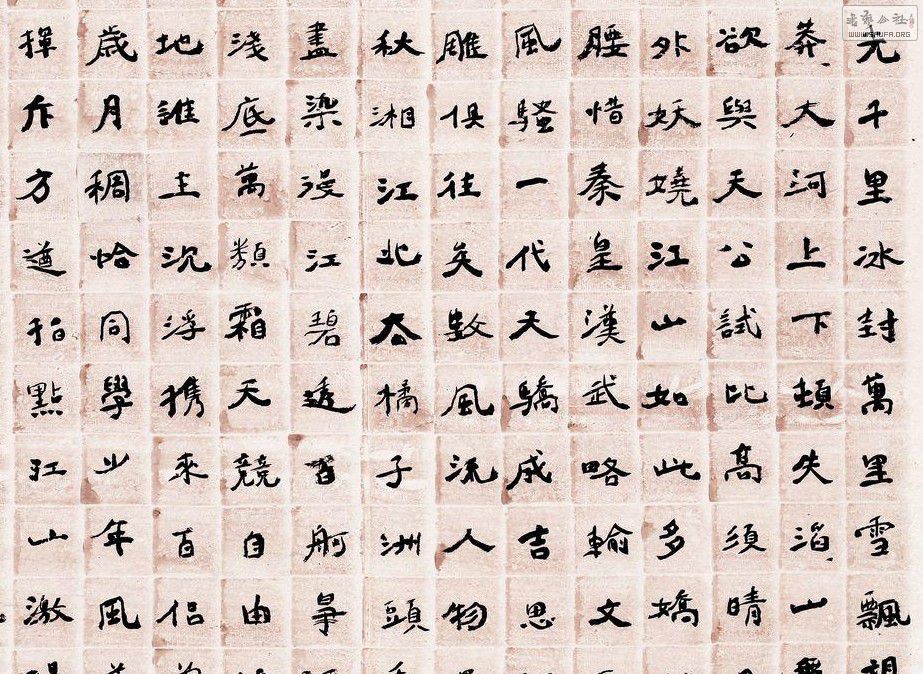 光千里冰封萬里雪飄
莽大河上下頓失滔山
欲與天公試比高須晴
外妖嬈江山如此多嬌
腰惜秦皇漢武略輸文
風騷一代天驕成吉思
雕俱往矣數風流人物
秋湘江北去橘子洲頭
盡染漫江碧透百舸爭
淺底萬類霜天競自由
地誰主沉浮携來百侶
歲月稠恰同學少年風
揮斥方遒指點江山激
书法公社
WWW.SHUFA.ORG